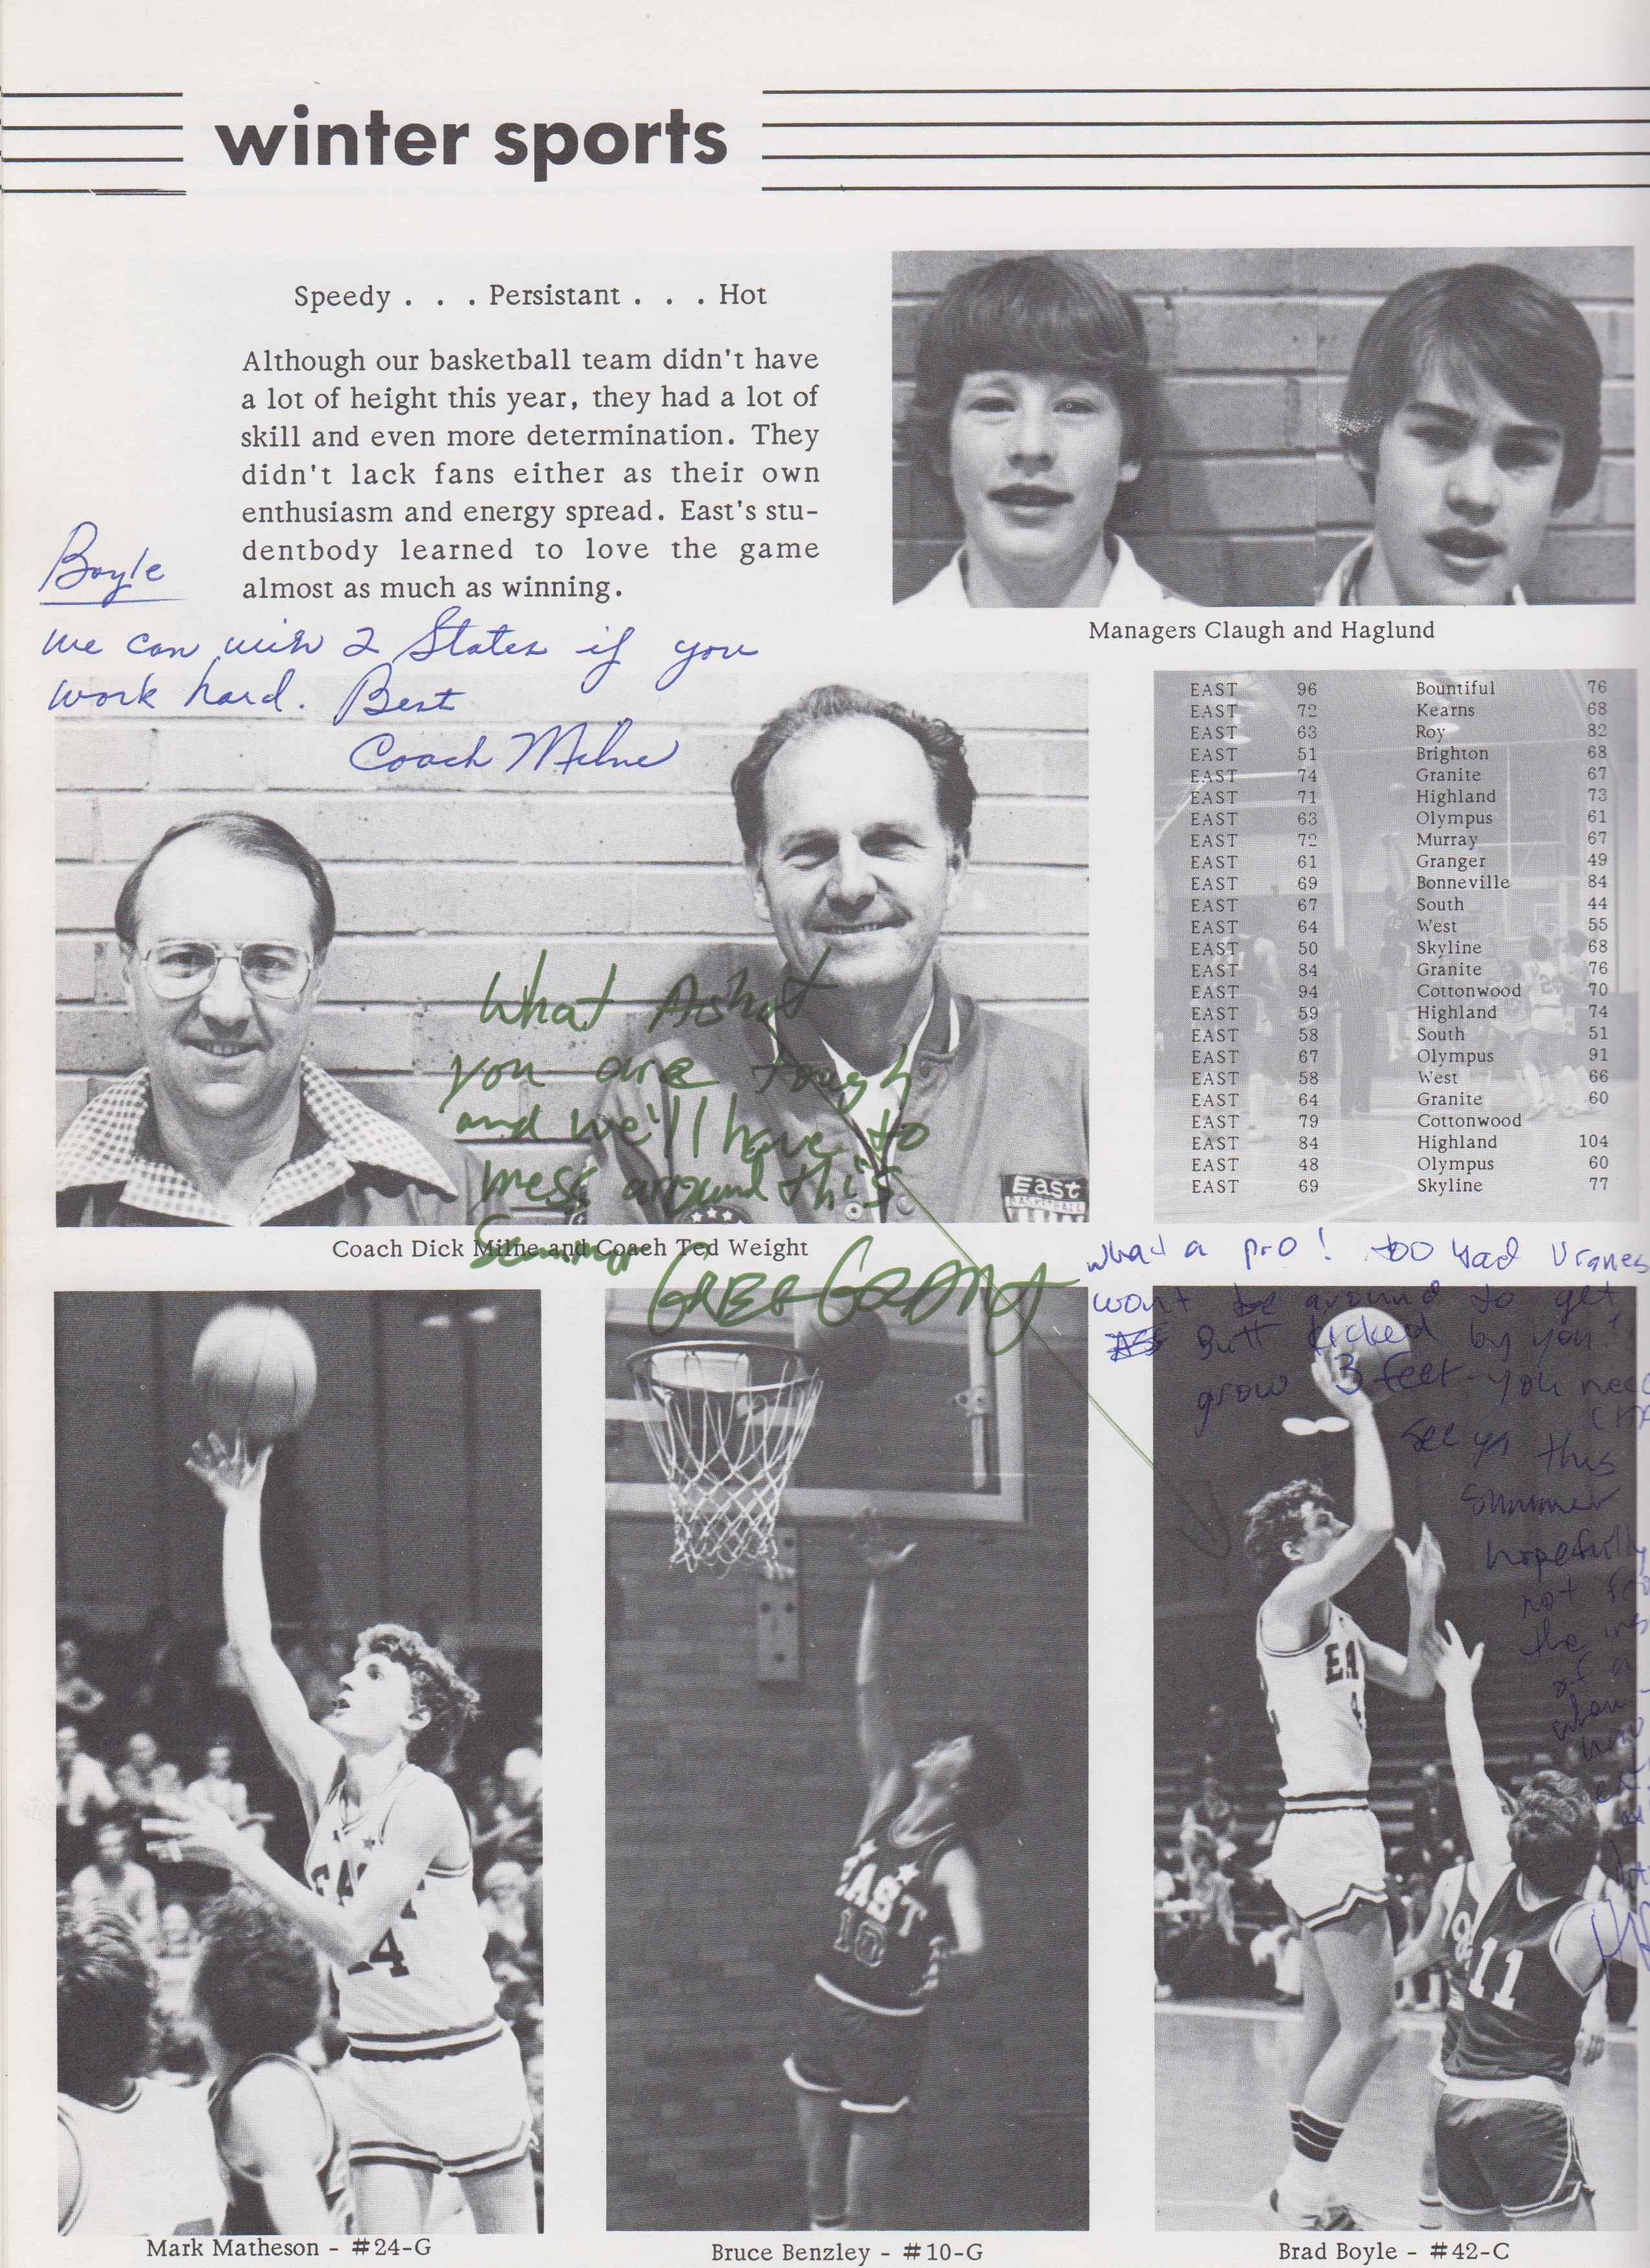 winter sports
Speedy . . . Persistant . . . Hot
Although our basketball team didn't have
a lot of height this year, they had a lot of
skill and even more determination. They
didn't lack fans either as their own
enthusiasm and energy spread. East's stu-
dentbody learned to love the game
almost as much as winning.
Boyle
we can win 2 States if you
work hard. Best
Coach Milne
Managers Claugh and Haglund
EAST 96 Bountiful 76
EAST 72 Kearns 68
EAST 63 Roy 82
EAST 51 Brighton 68
EAST 74 Granite 67
EAST 71 Highland 73
EAST 63 Olympus 61
EAST 72 Murray 67
EAST 61 Granger 49
EAST 69 Bonneville 84
EAST 67 South 44
EAST 64 West 55
EAST 50 Skyline 68
EAST 84 Granite 76
EAST 94 Cottonwood 70
EAST 59 Highland 74
EAST 58 South 51
EAST 67 Olympus 91
EAST 58 West 66
EAST 64 Granite 60
EAST 79 Cottonwood
EAST 84 Highland 104
EAST 48 Olympus 60
EAST 69 Skyline 77
What A shot
you are tough
and we'll have to
mess around this
Summer
East
BASKETBALL
Coach Dick Milne and Coach Ted Weight
what a pro! too bad Vranes
wont be around to get
Butt kicked by you!
grow 3 feet - you need
see ya this
summer
hopefully
not
the
of a
when
EAST
24
EAST
10
EA
4
11
Mark Matheson - #24-G
Bruce Benzley - #10-G
Brad Boyle - #42-C